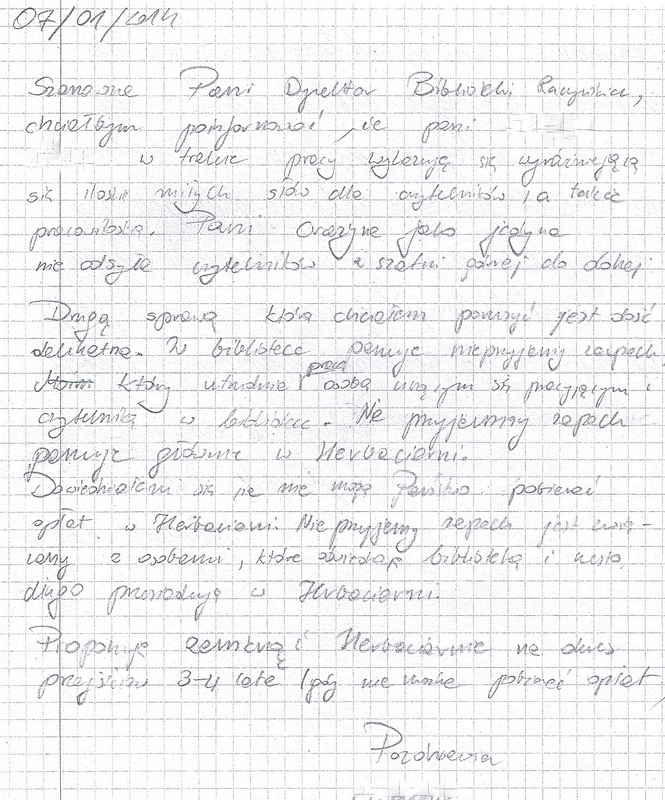 07/01/2014
Szanowna Pani Dyrektor Biblioteki Raczyńskich,
chciałbym poinformować, że pani
w trakcie pracy wykazują się wyróżniającą
się ilością miłych słów dla czytelników, a także
pracowitością. Pani Grażyna jako jedyna
nie odsyła czytelników z szatni górnej do dolnej
Drugą sprawą którą chciałem poruszyć jest dość
delikatna. W bibliotece panuje nieprzyjemny zapach
który utrudnia pracę osobą uczącym się pracującym i
czytelniką w bibliotece. Nie przyjemny zapach
panuje głównie w Herbaciarni.
Dowiedziałem się że nie mogą Państwo pobierać
opłat w Herbaciarni. Nie przyjemny zapach jest zwią-
zany z osobami, które odwiedzają bibliotekę i
długo przesiadują w Herbaciarni.
Proponuję zamknąć Herbaciarnie na okres
przejściowy 3-4 lata (gdy nie można pobierać opłat
Pozdrowienia